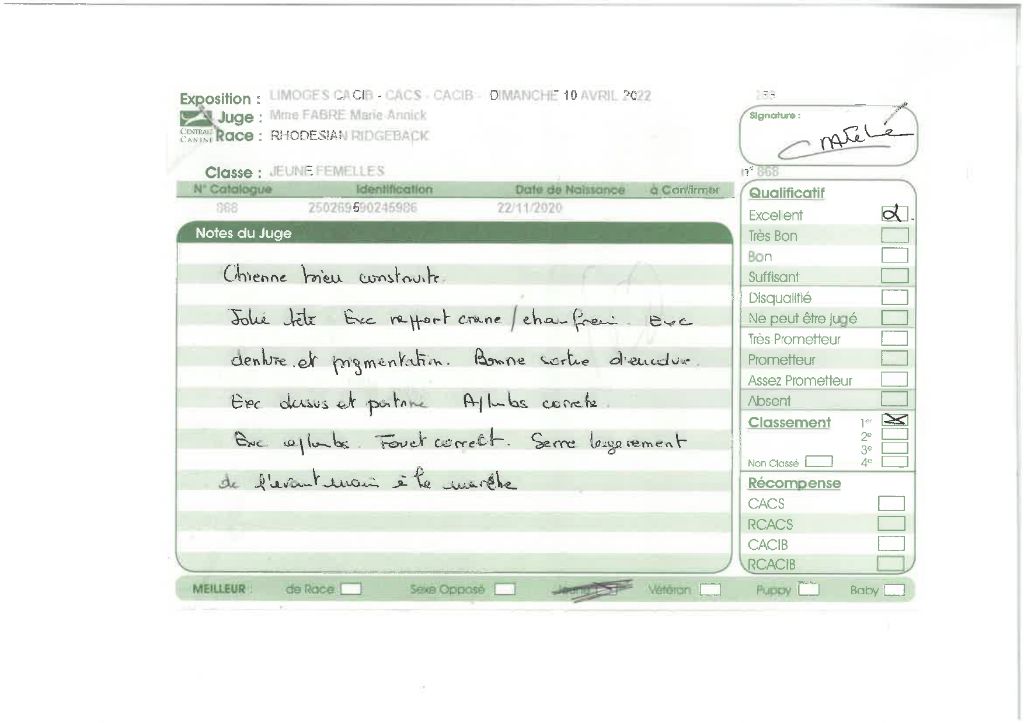 Exposition : LIMOGES CACIB - CACS - CACIB - DIMANCHE 10 AVRIL 2022
Juge : Mme FABRE Marie-Annick
CENTRALE CANINE
Race : RHODESIAN RIDGEBACK
Signature :
Classe : JEUNE FEMELLES
n° 868
N° Catalogue Identification Date de Naissance à Confirmer
868 250269590245986 22/11/2020
Notes du Juge
Chienne bien construite.
Jolie tête Exc rapport crane / chanfrein. Exc
denture et pigmentation. Bonne sortie d'encolure.
Exc dessus et poitrine Aplombs corrects.
Exc aplombs. Fouet correct. Serre legerement
de l'avant main à la marche
Qualificatif
Excellent
Très Bon
Bon
Suffisant
Disqualifié
Ne peut être jugé
Très Prometteur
Prometteur
Assez Prometteur
Absent
Classement 1er
2e
3e
Non Classé 4e
Récompense
CACS
RCACS
CACIB
RCACIB
MEILLEUR : de Race Sexe Opposé Jeune Vétéran Puppy Baby